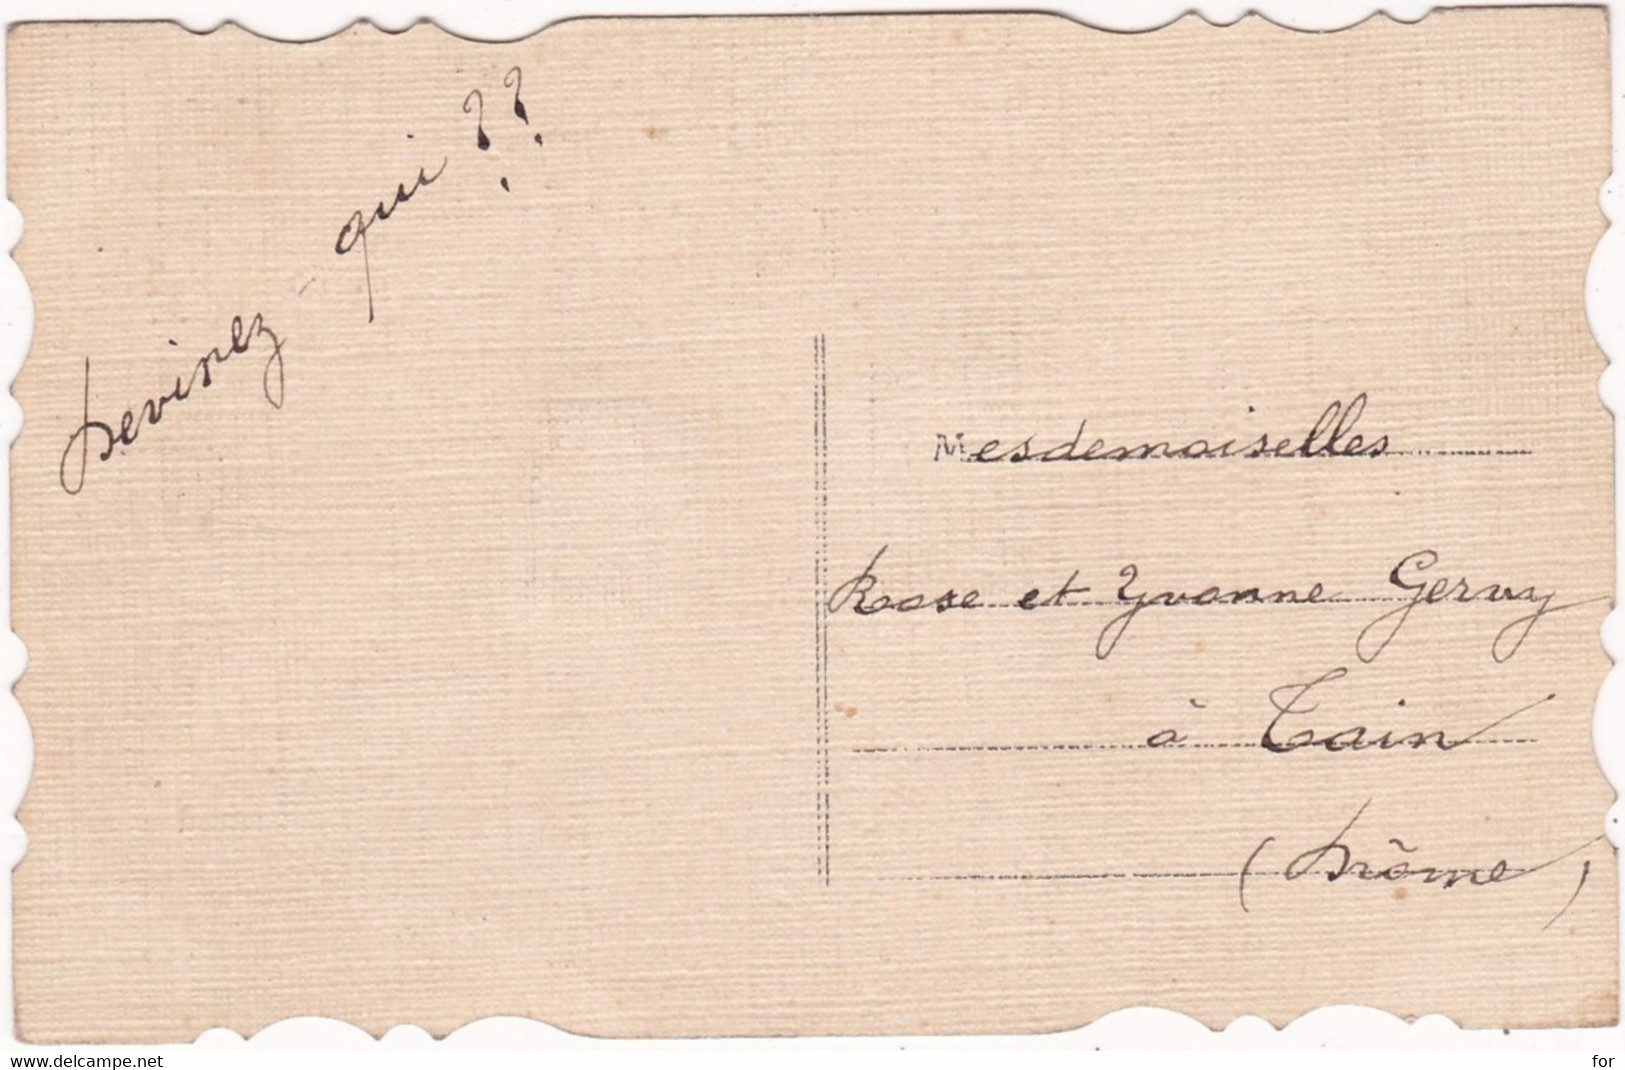 Devinez-qui ??
Mesdemoiselles
Rose et Yvonne Gervy
à Tain
(Drôme)
www.delcampe.net
for